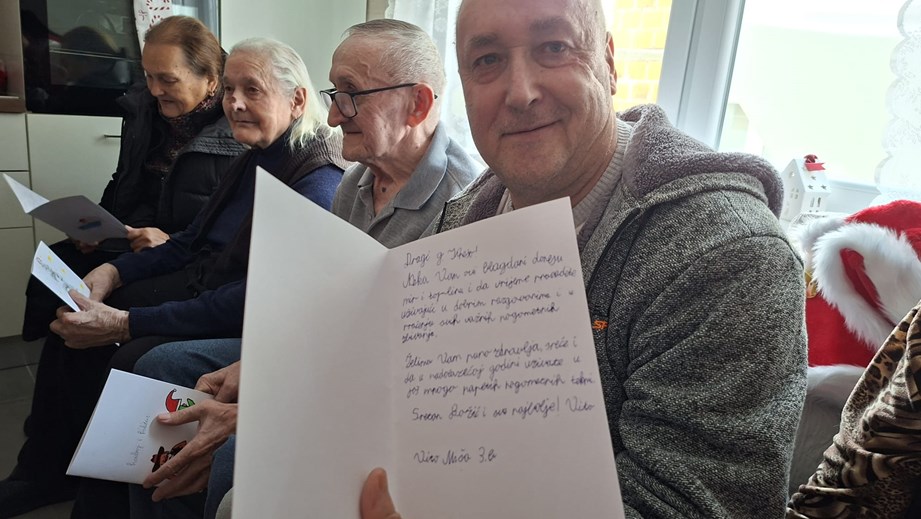 Dragi g. Josip!
Neka Vam ovi blagdani donesu
mir i toplinu i da vrijeme provodite
uživajući u dobrim razgovorima i u
praćenju svih važnih nogometnih
zbivanja.
Želim Vam puno zdravlja, sreće i
da u nadolazećoj godini uživate u
još mnogo napetih nogometnih tekmi.
Sretan Božić i sve najbolje! Vito
Vito 3.b